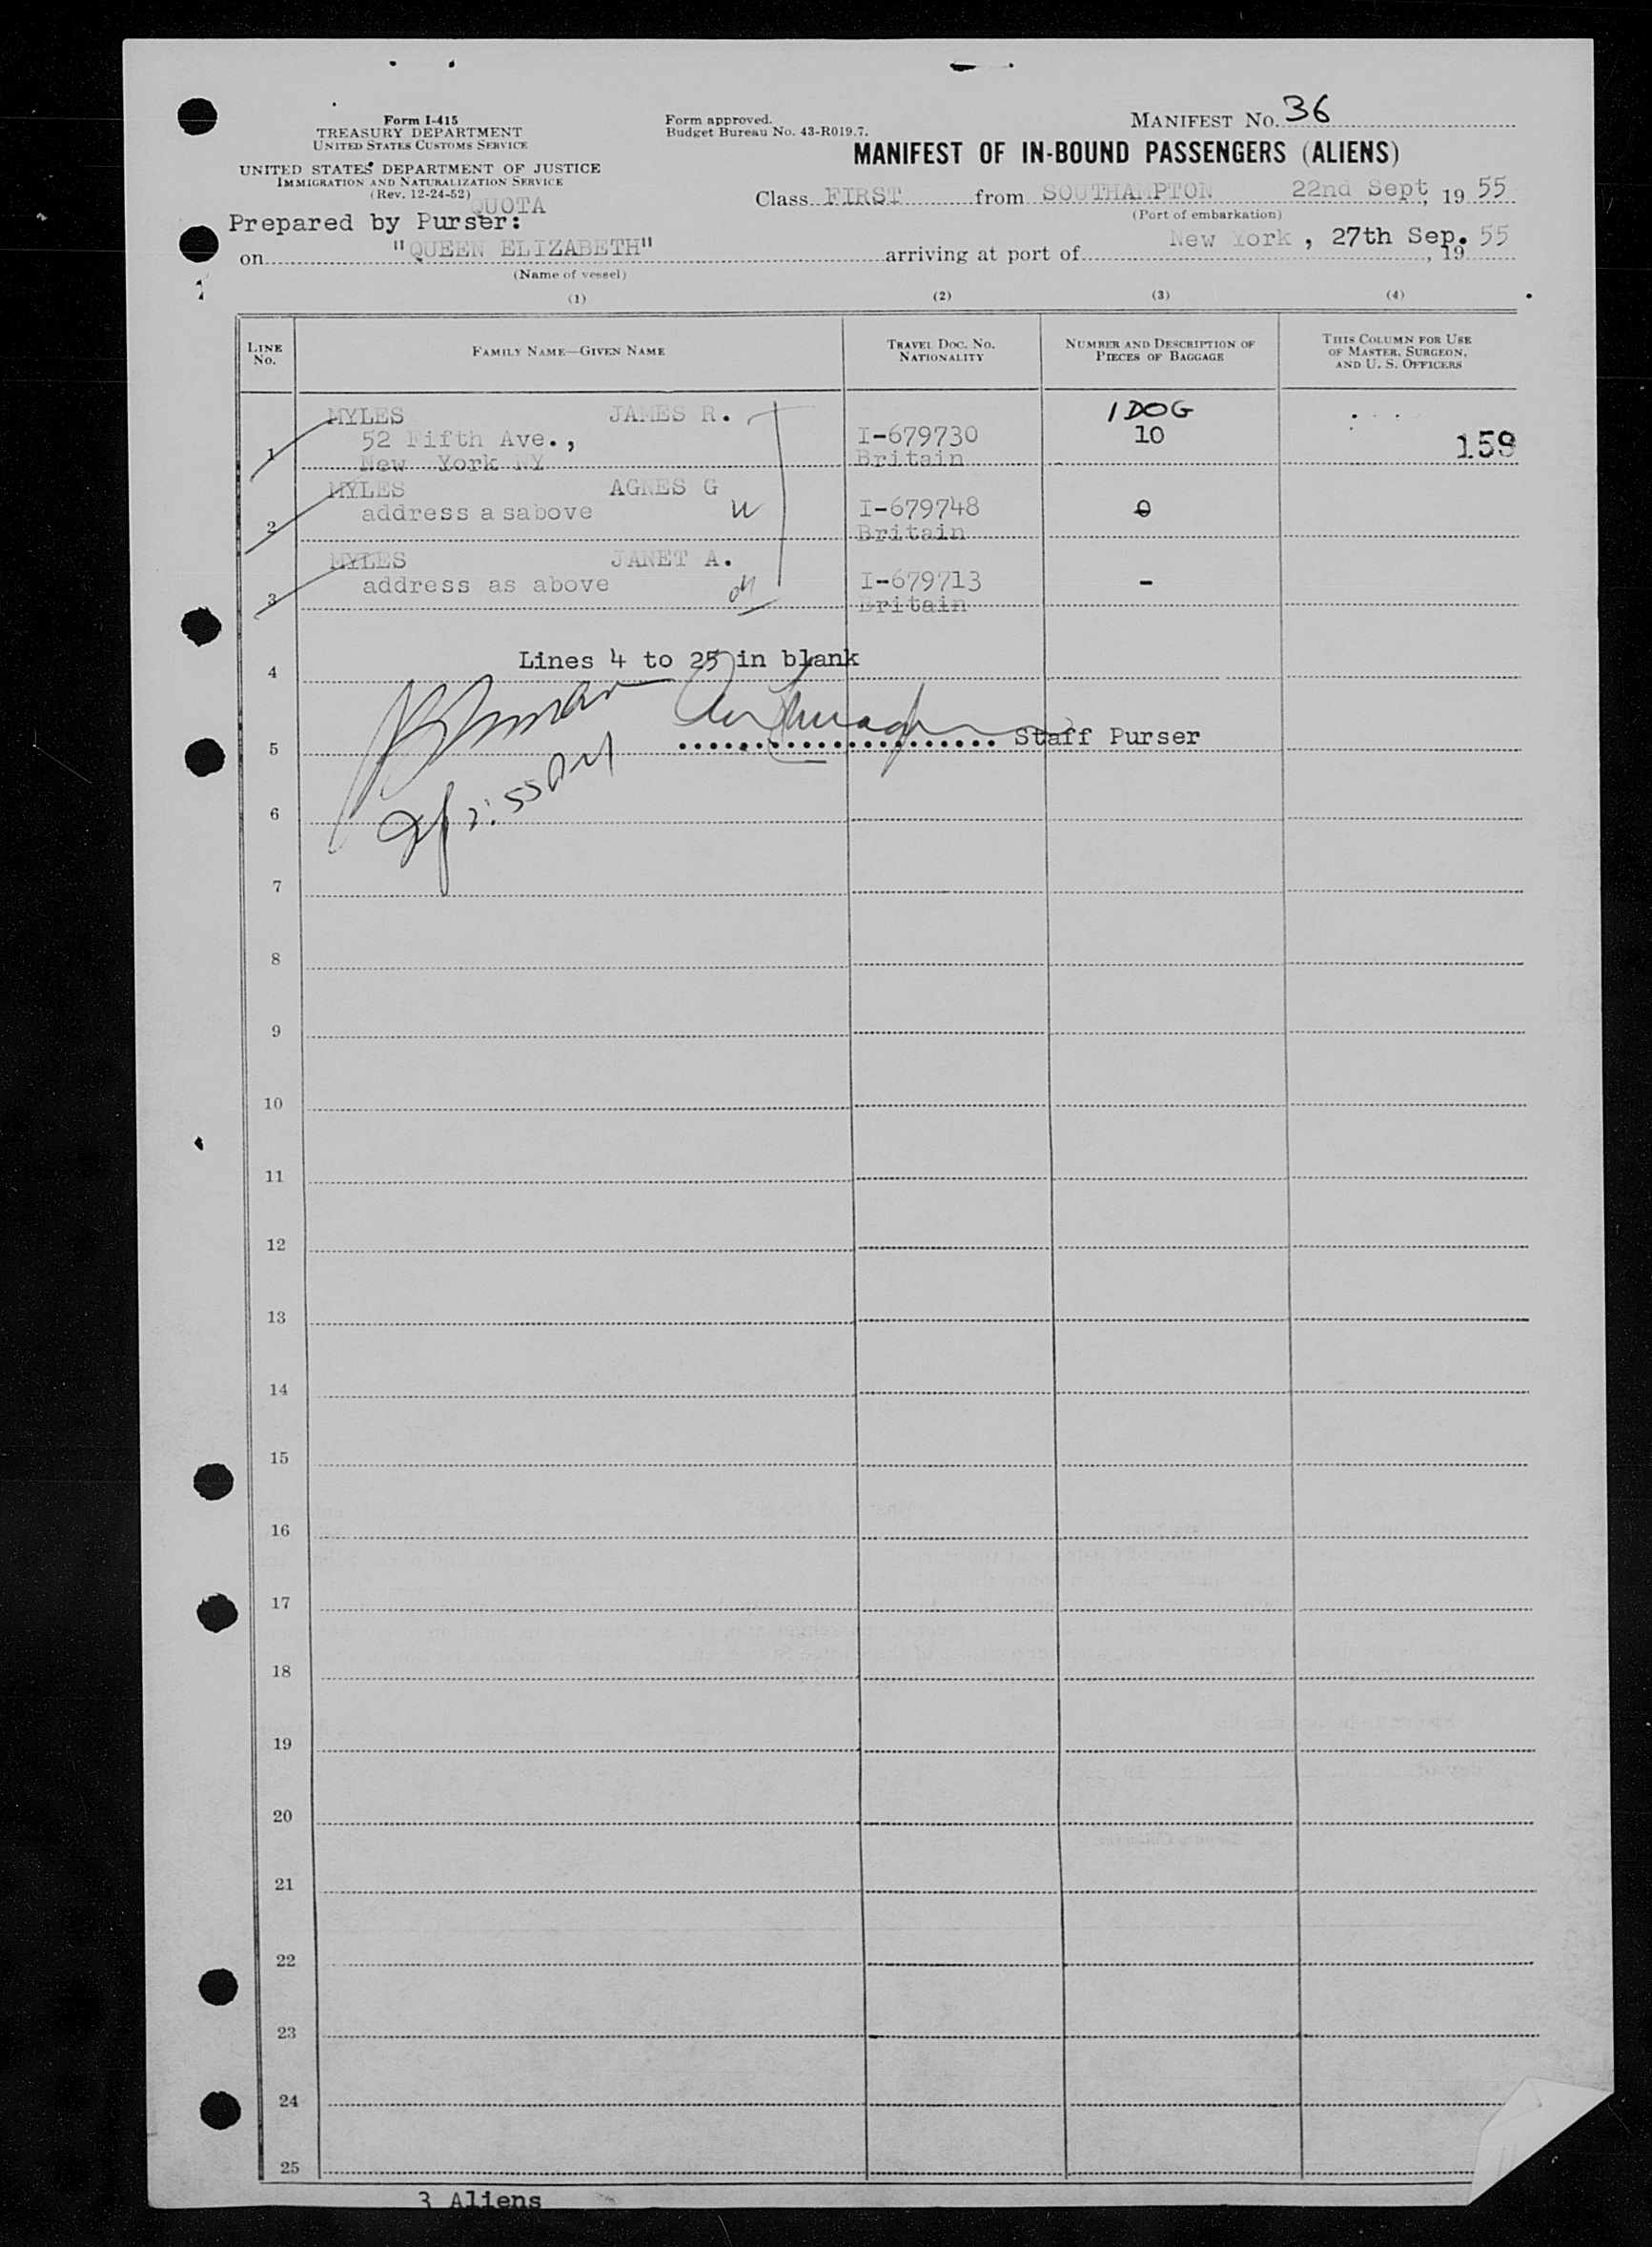 Form I-415
TREASURY DEPARTMENT
UNITED STATES CUSTOMS SERVICE
UNITED STATES DEPARTMENT OF JUSTICE
IMMIGRATION AND NATURALIZATION SERVICE
(Rev. 12-24-52)
QUOTA
Form approved.
Budget Bureau No. 43-R019.7.
MANIFEST No. 36
MANIFEST OF IN-BOUND PASSENGERS (ALIENS)
Class FIRST from SOUTHAMPTON 22nd Sept, 19 55
(Port of embarkation)
Prepared by Purser:
on "QUEEN ELIZABETH" arriving at port of New York, 27th Sep. 19 55
(Name of vessel)
(1) (2) (3) (4)
LINE No. FAMILY NAME—GIVEN NAME TRAVEL DOC. NO. NATIONALITY NUMBER AND DESCRIPTION OF PIECES OF BAGGAGE THIS COLUMN FOR USE OF MASTER, SURGEON, AND U. S. OFFICERS
MYLES JAMES R. 1 DOG
1 52 Fifth Ave., I-679730 10 159
New York NY Britain
MYLES AGNES G
2 address a sabove I-679748 0
Britain
MYLES JANET A.
3 address as above I-679713 -
Britain
Lines 4 to 25 in blank
4
5 Staff Purser
6
7
8
9
10
11
12
13
14
15
16
17
18
19
20
21
22
23
24
25
3 Aliens